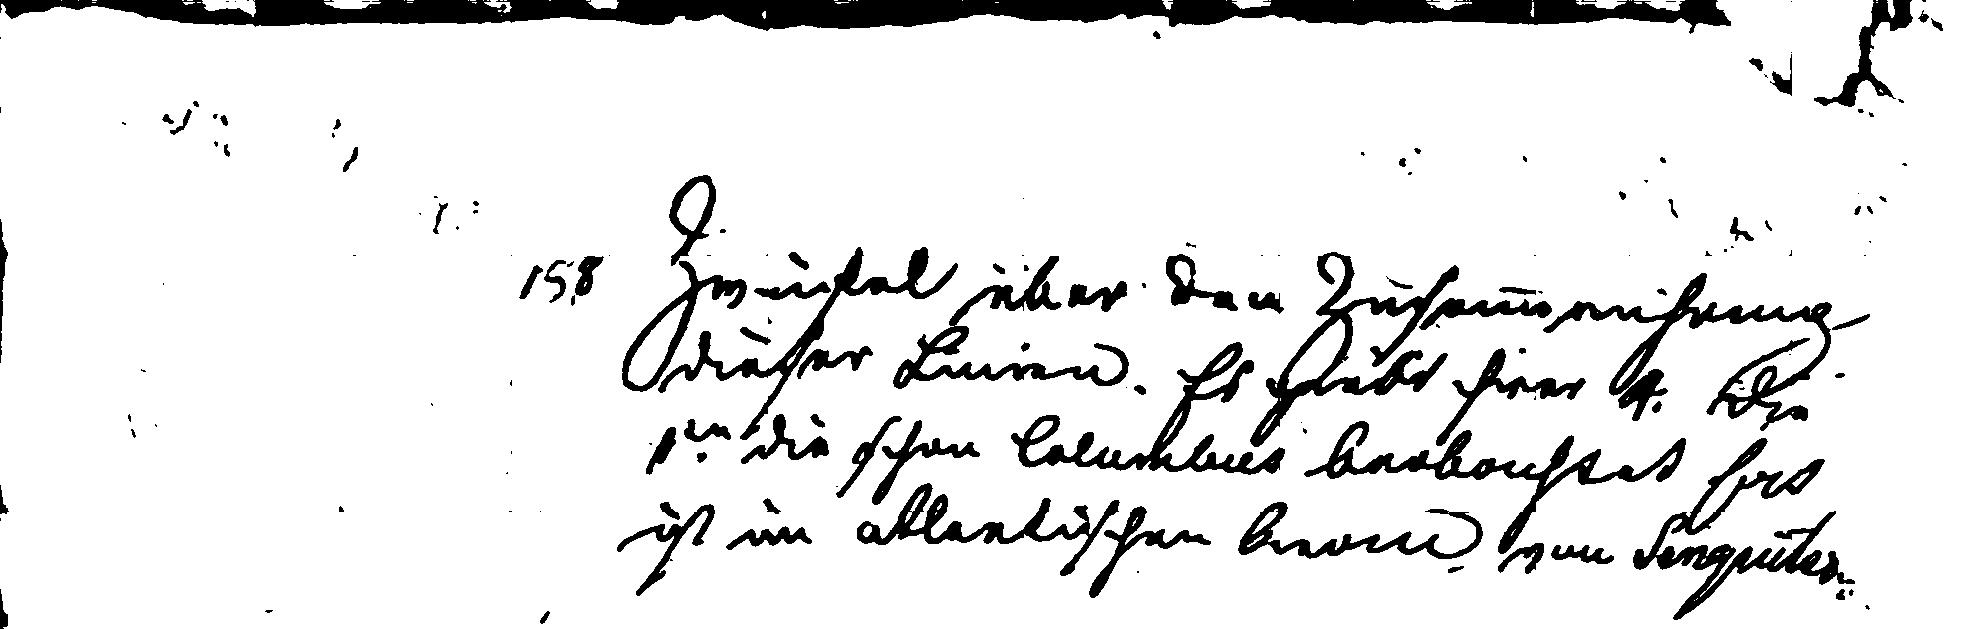 158 Zweifel über den Zusammenhang
dieser Linien. Es giebt hier 4. Die
1te die schon Columbus beobachtet hat
ist im atlantischen Ocean von